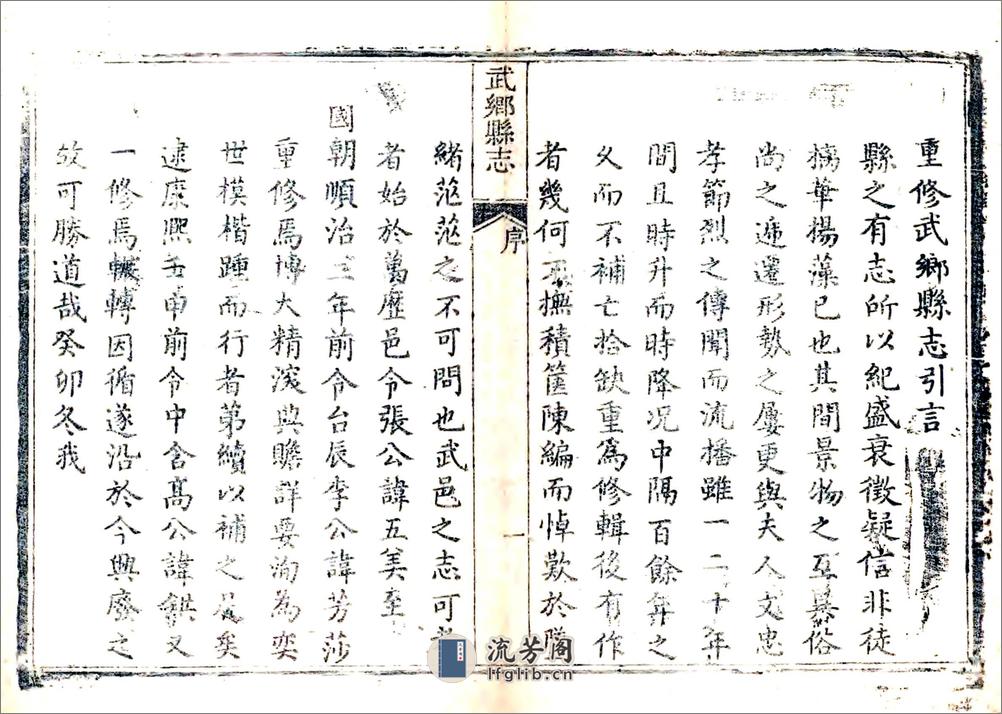 重修武鄉縣志引言
縣之有志所以紀盛衰徵疑信非徒
摛華揚藻已也其間景物之互暴俗
尚之遞遷形勢之屢更與夫人文忠
孝節烈之傳聞而流播雖一二十年
間且時升而時降况中隔百餘年之
久而不補亡拾缺重為修輯後有作
者幾何不撫積篋陳編而悼歎於
武鄉縣志
序
一
緒茫茫之不可問也武邑之志可
者始於萬歷邑令張公諱五美至
國朝順治三年前令台辰李公諱芳莎
重修焉博大精深典贍詳要洵為奕
世模楷踵而行者第續以補之足矣
逮康熙壬申前令中含高公諱鉷又
一修焉輾轉因循遂沿於今興廢之
故可勝道哉癸卯冬我
流芳阁
lfglib.cn